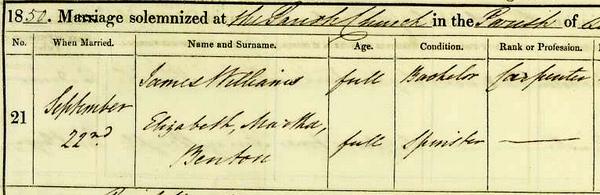 1850. Marriage solemnized at the Parish Church in the Parish of
No. When Married. Name and Surname. Age. Condition. Rank or Profession.
21 September 22nd James Williams full Bachelor Carpenter
Elizabeth, Martha, Benton full Spinster —